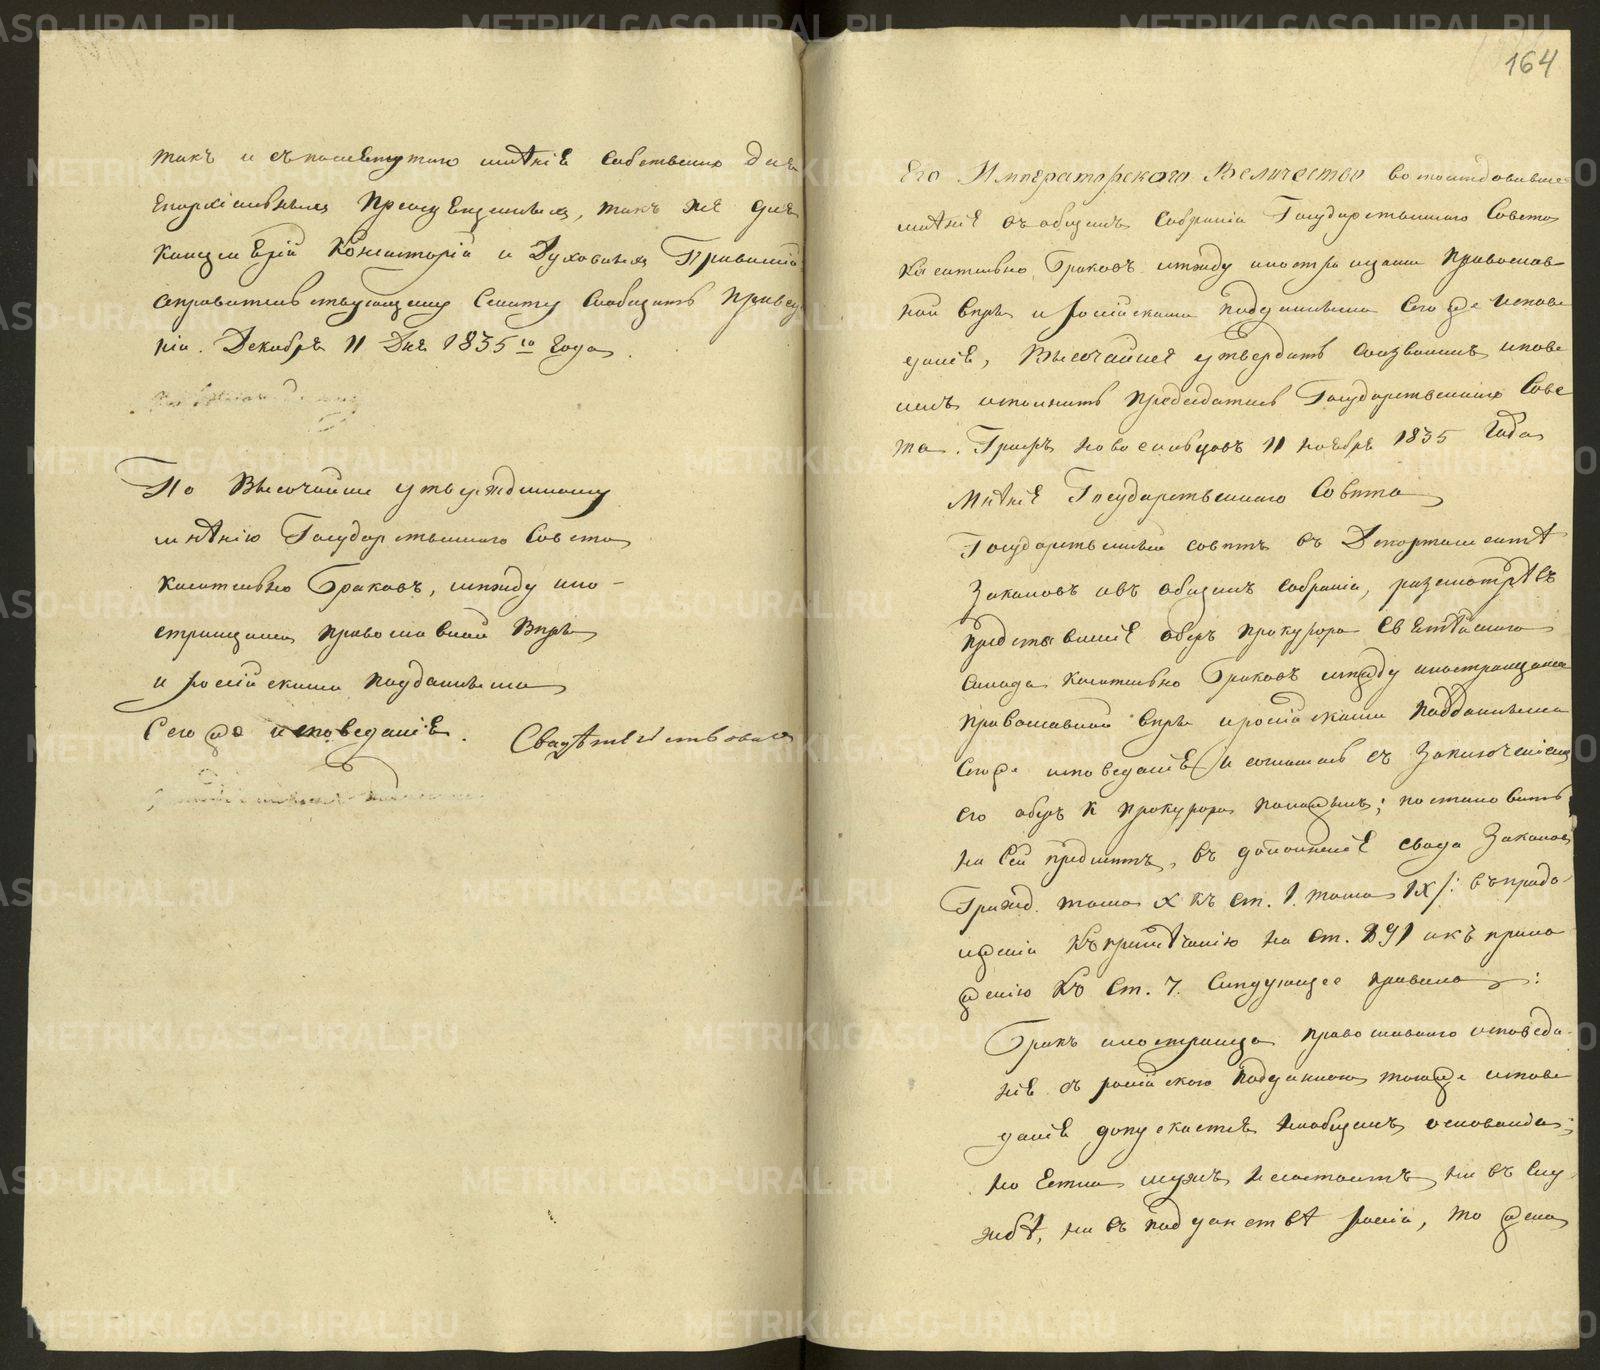 такъ и съ
Епархіальныхъ такъ же для
Канцелярій Консисторій и Духовныхъ Правленій
Правительствующему Сенату Сообщить
нія. Декабря 11 Дня 1835 го Года.
По Высочайше утвержденному
мнѣнію Государственнаго Совета
Касательно Браковъ, между ино-
странцами православной Вѣры
и россійскими подданными
Сегоже исповеданія.
164
Его Императорского Величество воспоследовавшее
мнѣніе въ общемъ Собраніи Государственнаго Совета
Касательно Браковъ между иностранцами Православ
ной Вѣры и россійскими подданными Сегоже испове
данія, Высочайше утвердить соизволилъ и пове
лелъ исполнить Председатель Государственнаго Сове
та. Графъ Новосильцовъ 11 ноября 1835 Года
Мнѣніе Государственнаго Совѣта
Государственный совѣтъ въ Департаментѣ
Законовъ и въ общемъ собраніи, разсмотрѣвъ
представленіе оберъ прокурора Святѣйшаго
Синода Касательно Браковъ между иностранцами
православной вѣры и россійскими подданными
Сегоже исповеданія и согласно съ Заключеніемъ
его оберъ прокурора положилъ; постановить
на Сей предметъ, въ дополненіе свода Законовъ
Гражд. тома X къ ст. 1. тома IX /: въ продо
лженіи Къ примѣчанію на ст. 891 и къ прило
женію Къ Ст. 7. Слѣдующее правило:
Бракъ иностранца православнаго исповеда
нія съ россійскою подданною тогоже испове
данія допускается на общемъ основаніи;
но Естли мужъ несостоитъ ни въ Слу
жбѣ, ни въ подданствѣ россіи, то жена